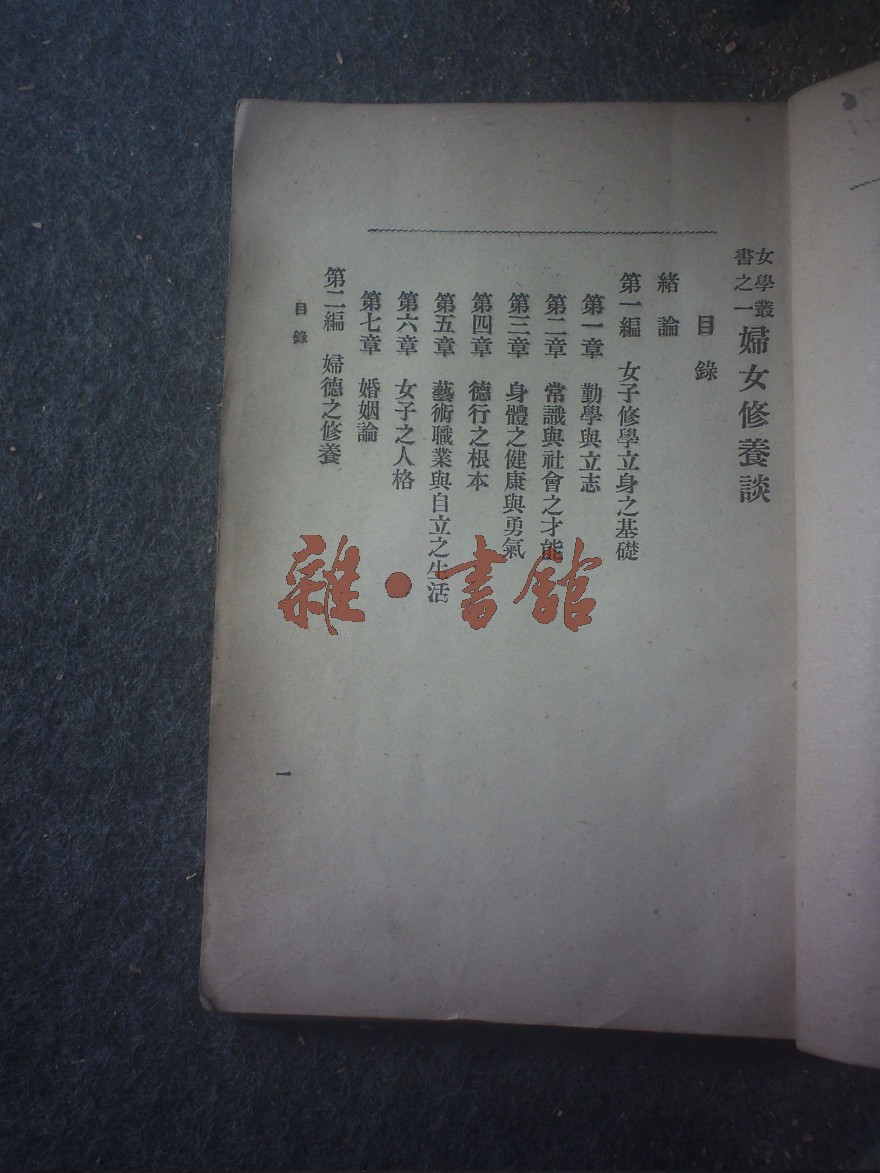 女學叢書之一 婦女修養談
目錄
緒論
第一編 女子修學立身之基礎
第一章 勤學與立志
第二章 常識與社會之才能
第三章 身體之健康與勇氣
第四章 德行之根本
第五章 藝術職業與自立之生活
第六章 女子之人格
第七章 婚姻論
第二編 婦德之修養
目錄
一
雜·書館